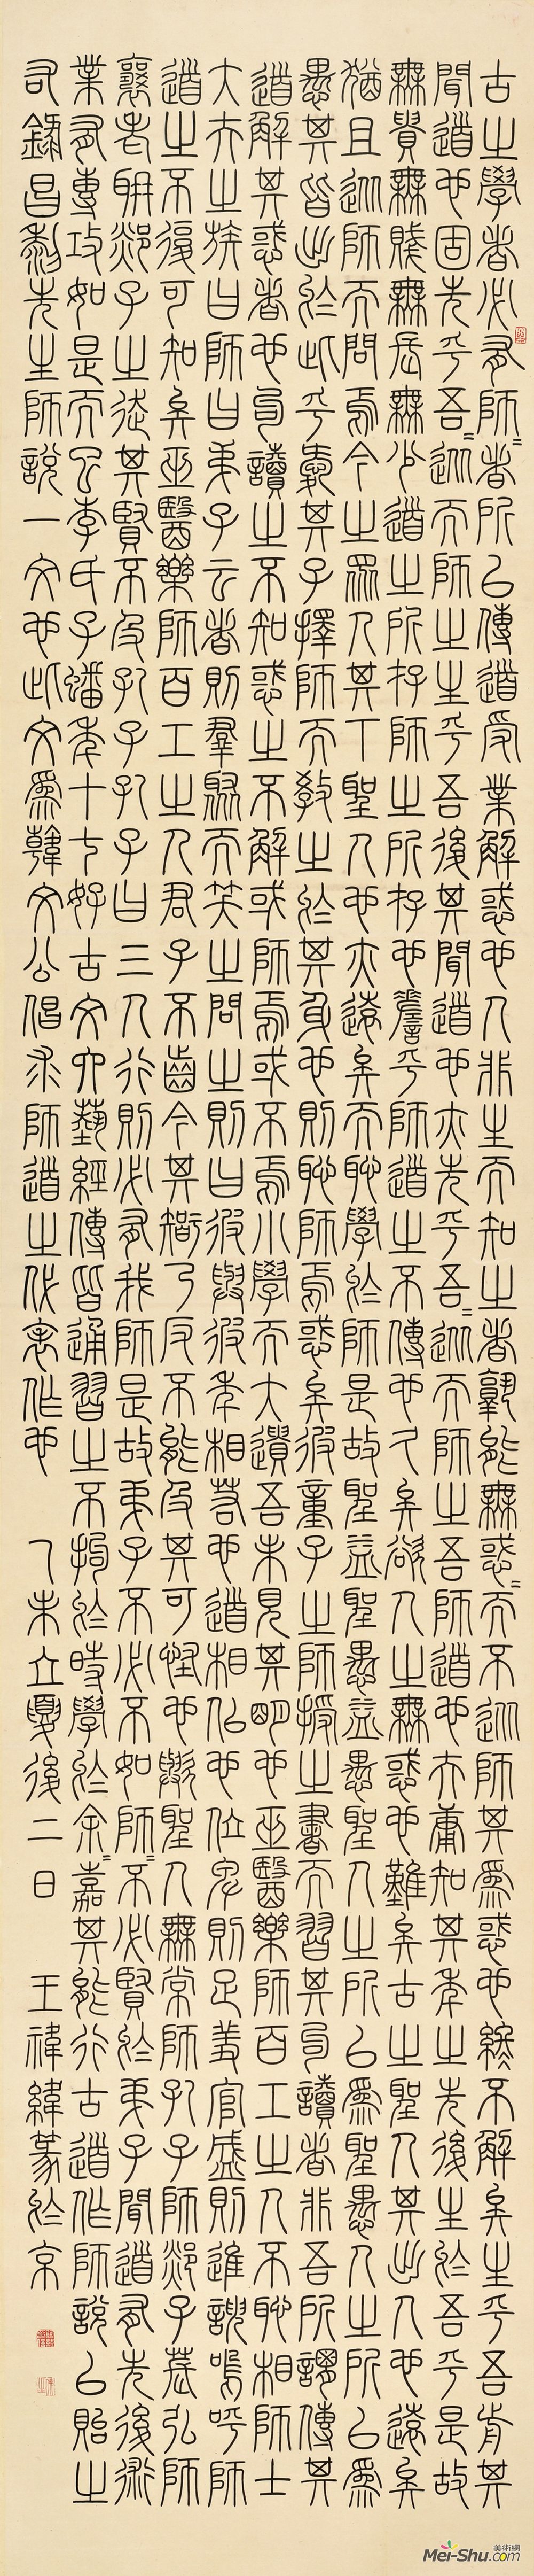 古之學者必有師=者所以傳道受業解惑也人非生而知之者孰能無惑=而不從師其為惑也終不解矣生乎吾前其
聞道也固先乎吾=從而師之生乎吾後其聞道也亦先乎吾=從而師之吾師道也夫庸知其年之先後生於吾乎是故
無貴無賤無長無少道之所存師之所存也嗟乎師道之不傳也久矣欲人之無惑也難矣古之聖人其出人也遠矣
猶且從師而問焉今之眾人其下聖人也亦遠矣而恥學於師是故聖益聖愚益愚聖人之所以為聖愚人之所以為
愚其皆出於此乎愛其子擇師而教之於其身也則恥師焉惑矣彼童子之師授之書而習其句讀者非吾所謂傳其
道解其惑者也句讀之不知惑之不解或師焉或不焉小學而大遺吾未見其明也巫醫樂師百工之人不恥相師士
大夫之族曰師曰弟子云者則羣聚而笑之問之則曰彼與彼年相若也道相似也位卑則足羞官盛則近諛嗚呼師
道之不復可知矣巫醫樂師百工之人君子不齒今其智乃反不能及其可怪也歟聖人無常師孔子師郯子萇弘師
襄老聃郯子之徒其賢不及孔子孔子曰三人行則必有我師是故弟子不必不如師=不必賢於弟子聞道有先後術
業有專攻如是而已李氏子蟠年十七好古文六藝經傳皆通習之不拘於時學於余=嘉其能行古道作師說以貽之
右錄昌黎先生師說一文也此文為韓文公倡承師道之代表作也 乙未立夏後二日 王禕緯篆於京
美術網
Mei-Shu.com